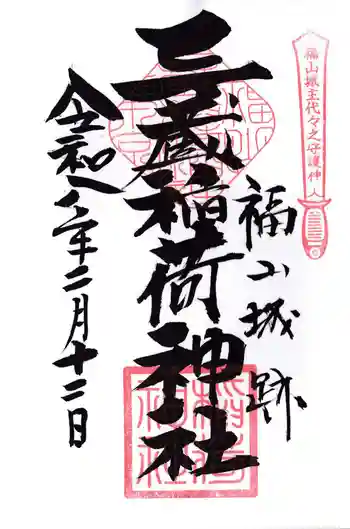 福山城主代々之守護神
福山城跡
三蔵稲荷神社
令和二年二月十二日
稲荷
神社